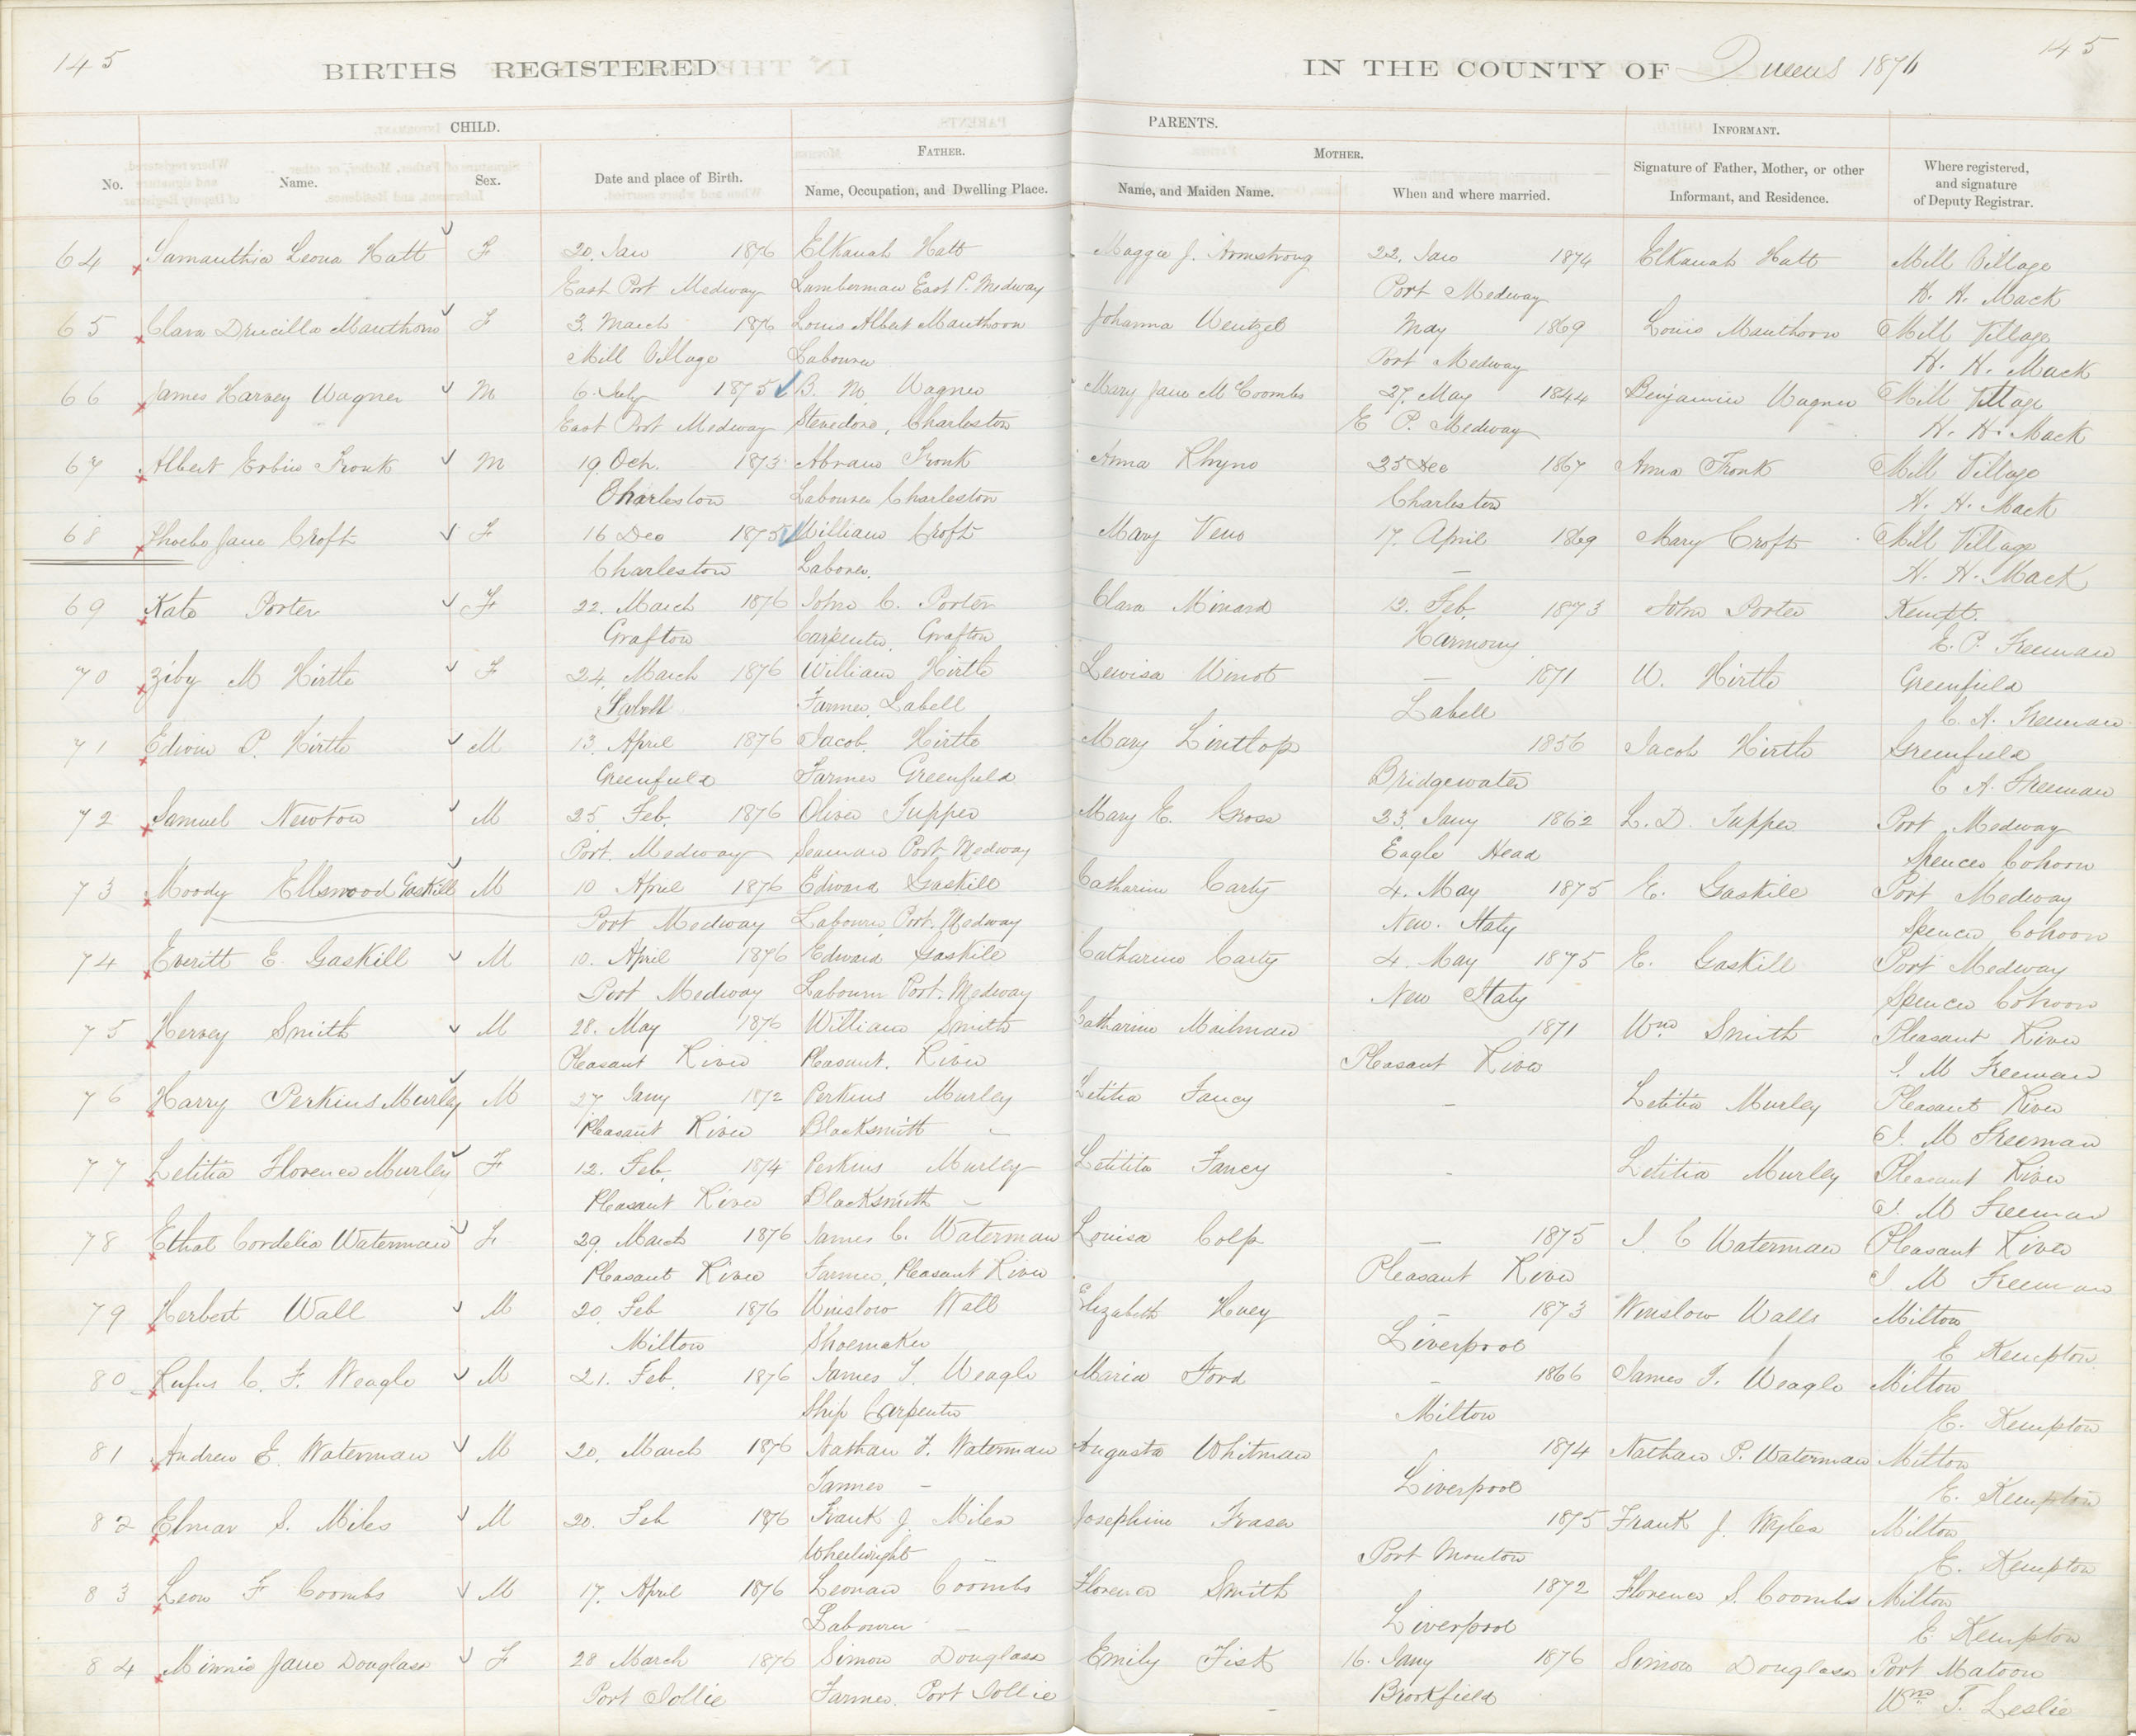 145
BIRTHS REGISTERED
IN THE COUNTY OF Queens 1876
145
CHILD.
PARENTS.
INFORMANT.
FATHER.
MOTHER.
No.
Name.
Sex.
Date and place of Birth.
Name, Occupation, and Dwelling Place.
Name, and Maiden Name.
When and where married.
Signature of Father, Mother, or other
Informant, and Residence.
Where registered,
and signature
of Deputy Registrar.
64 Samanthia Leona Hatt F 20. Jan 1876 Elkanah Hatt Maggie J. Armstrong 22. Jan 1874 Elkanah Hatt Mill Village
East Port Medway Lumberman East P. Medway Port Medway H. H. Mack
65 Clara Drucilla Manthorn F 3. March 1876 Louis Albert Manthorn Johanna Wentzel May 1869 Louis Manthorn Mill Village
Mill Village Labourer Port Medway H. H. Mack
66 James Harvey Wagner M 6. July 1875 B. M. Wagner Mary Jane McCoombs 27. May 1844 Benjamin Wagner Mill Village
East Port Medway Stevedore, Charleston E P. Medway H. H. Mack
67 Albert Erbin Fronk M 19. Oct. 1873 Abram Fronk Anna Rhyno 25 Dec 1867 Anna Fronk Mill Village
Charleston Labourer Charleston Charleston H. H. Mack
68 Phoebe Jane Croft F 16 Dec 1875 William Croft Mary Veno 17. April 1869 Mary Croft Mill Village
Charleston Laborer. — H. H. Mack
69 Kate Porter F 22. March 1876 John C. Porter Clara Minard 12. Feb. 1873 John Porter Kempt.
Grafton Carpenter, Grafton Harmony E. P. Freeman
70 Ziby M Hirtle F 24. March 1876 William Hirtle Lewisa Winot — 1871 W. Hirtle Greenfield
Labell Farmer, Labell Labell C. A. Freeman
71 Edwin P. Hirtle M 13. April 1876 Jacob Hirtle Mary Linttop 1856 Jacob Hirtle Greenfield
Greenfield Farmer Greenfield Bridgewater C A. Freeman
72 Samuel Newton M 25. Feb. 1876 Oliver Tupper Mary E. Gross 23. Jany 1862 L. D. Tupper Port Medway
Port. Medway Seaman Port Medway Eagle Head Spencer Cohoon
73 Moody Ellswood Gaskill M 10 April 1876 Edward Gaskill Catharine Carty 4. May 1875 E. Gaskill Port Medway
Port Medway Labourer Port. Medway New. Italy Spencer Cohoon
74 Everitt E. Gaskill M 10. April 1876 Edward Gaskill Catharine Carty 4. May 1875 E. Gaskill Port Medway
Port Medway Labourer Port. Medway New Italy Spencer Cohoon
75 Hervey Smith M 28. May 1876 William Smith Catharine Mailman 1871 Wm Smith Pleasant River
Pleasant River Pleasant. River Pleasant River J. M Freeman
76 Harry Perkins Murley M 27 Jany 1872 Perkins Murley Letitia Fancy - Letitia Murley Pleasant River
Pleasant River Blacksmith — J. M Freeman
77 Letitia Florence Murley F 12. Feb. 1874 Perkins Murley Letitita Fancy - Letitia Murley Pleasant River
Pleasant River Blacksmith — J. M Freeman
78 Ethal Cordelia Waterman F 29. March 1876 James C. Waterman Louisa Colp — 1875 J. C Waterman Pleasant River
Pleasant River Farmer, Pleasant River Pleasant River J M Freeman
79 Herbert Wall M 20. Feb 1876 Winslow Wall Elizabeth Huey - 1873 Winslow Walls Milton
Milton Shoemaker Liverpool E Kempton
80 Rufus C. F. Weagle M 21. Feb. 1876 James T. Weagle Maria Ford - 1866 James T. Weagle Milton
Ship Carpenter Milton E. Kempton
81 Andrew E. Waterman M 20. March 1876 Nathan F. Waterman Augusta Whitman 1874 Nathan P. Waterman Milton
Farmer — Liverpool E. Kempton
82 Elmar S. Miles M 20. Feb 1876 Frank J. Miles Josephine Fraser 1875 Frank J. Myles Milton
Wheelwright — Port Mouton E. Kempton
83 Leon F Coombs M 17. April 1876 Leonard Coombs Florence Smith 1872 Florence S. Coombs Milton
Labourer — Liverpool E Kempton
84 Minnie Jane Douglass F 28 March 1876 Simon Douglass Emily Fisk 16. Jany 1876 Simon Douglass Port Matoon
Port Jollie Farmer. Port Jollie Brookfield Wm T. Leslie